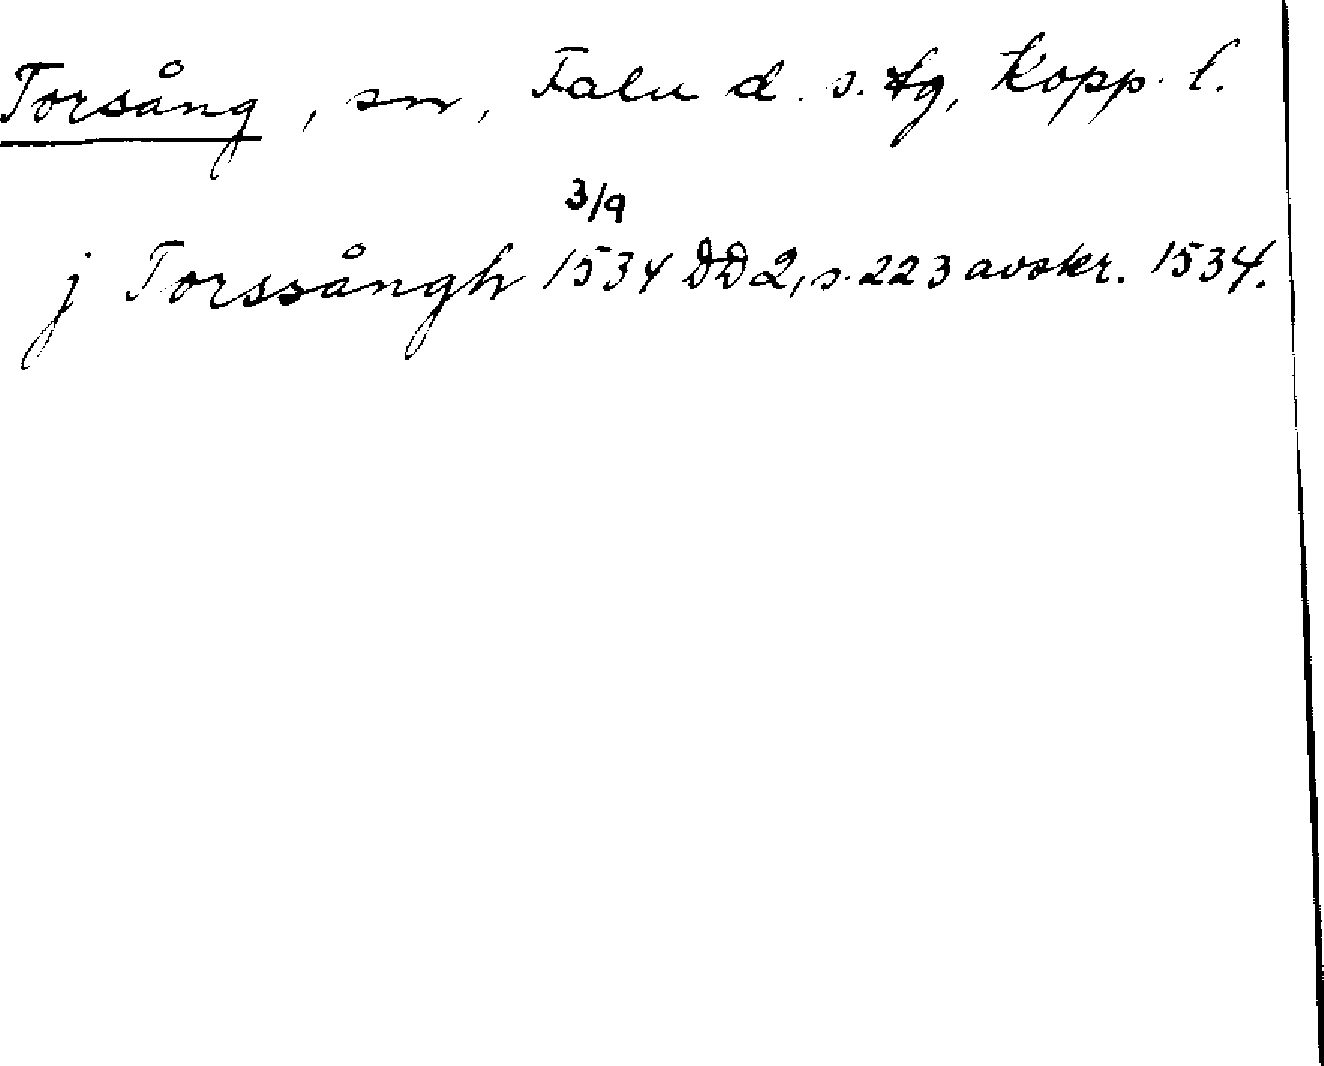 Torsång, sn, Falu d. s. tg, Kopp. l.
3/9
j Torssångh 1534 DD 2, s. 223 avskr. 1534.